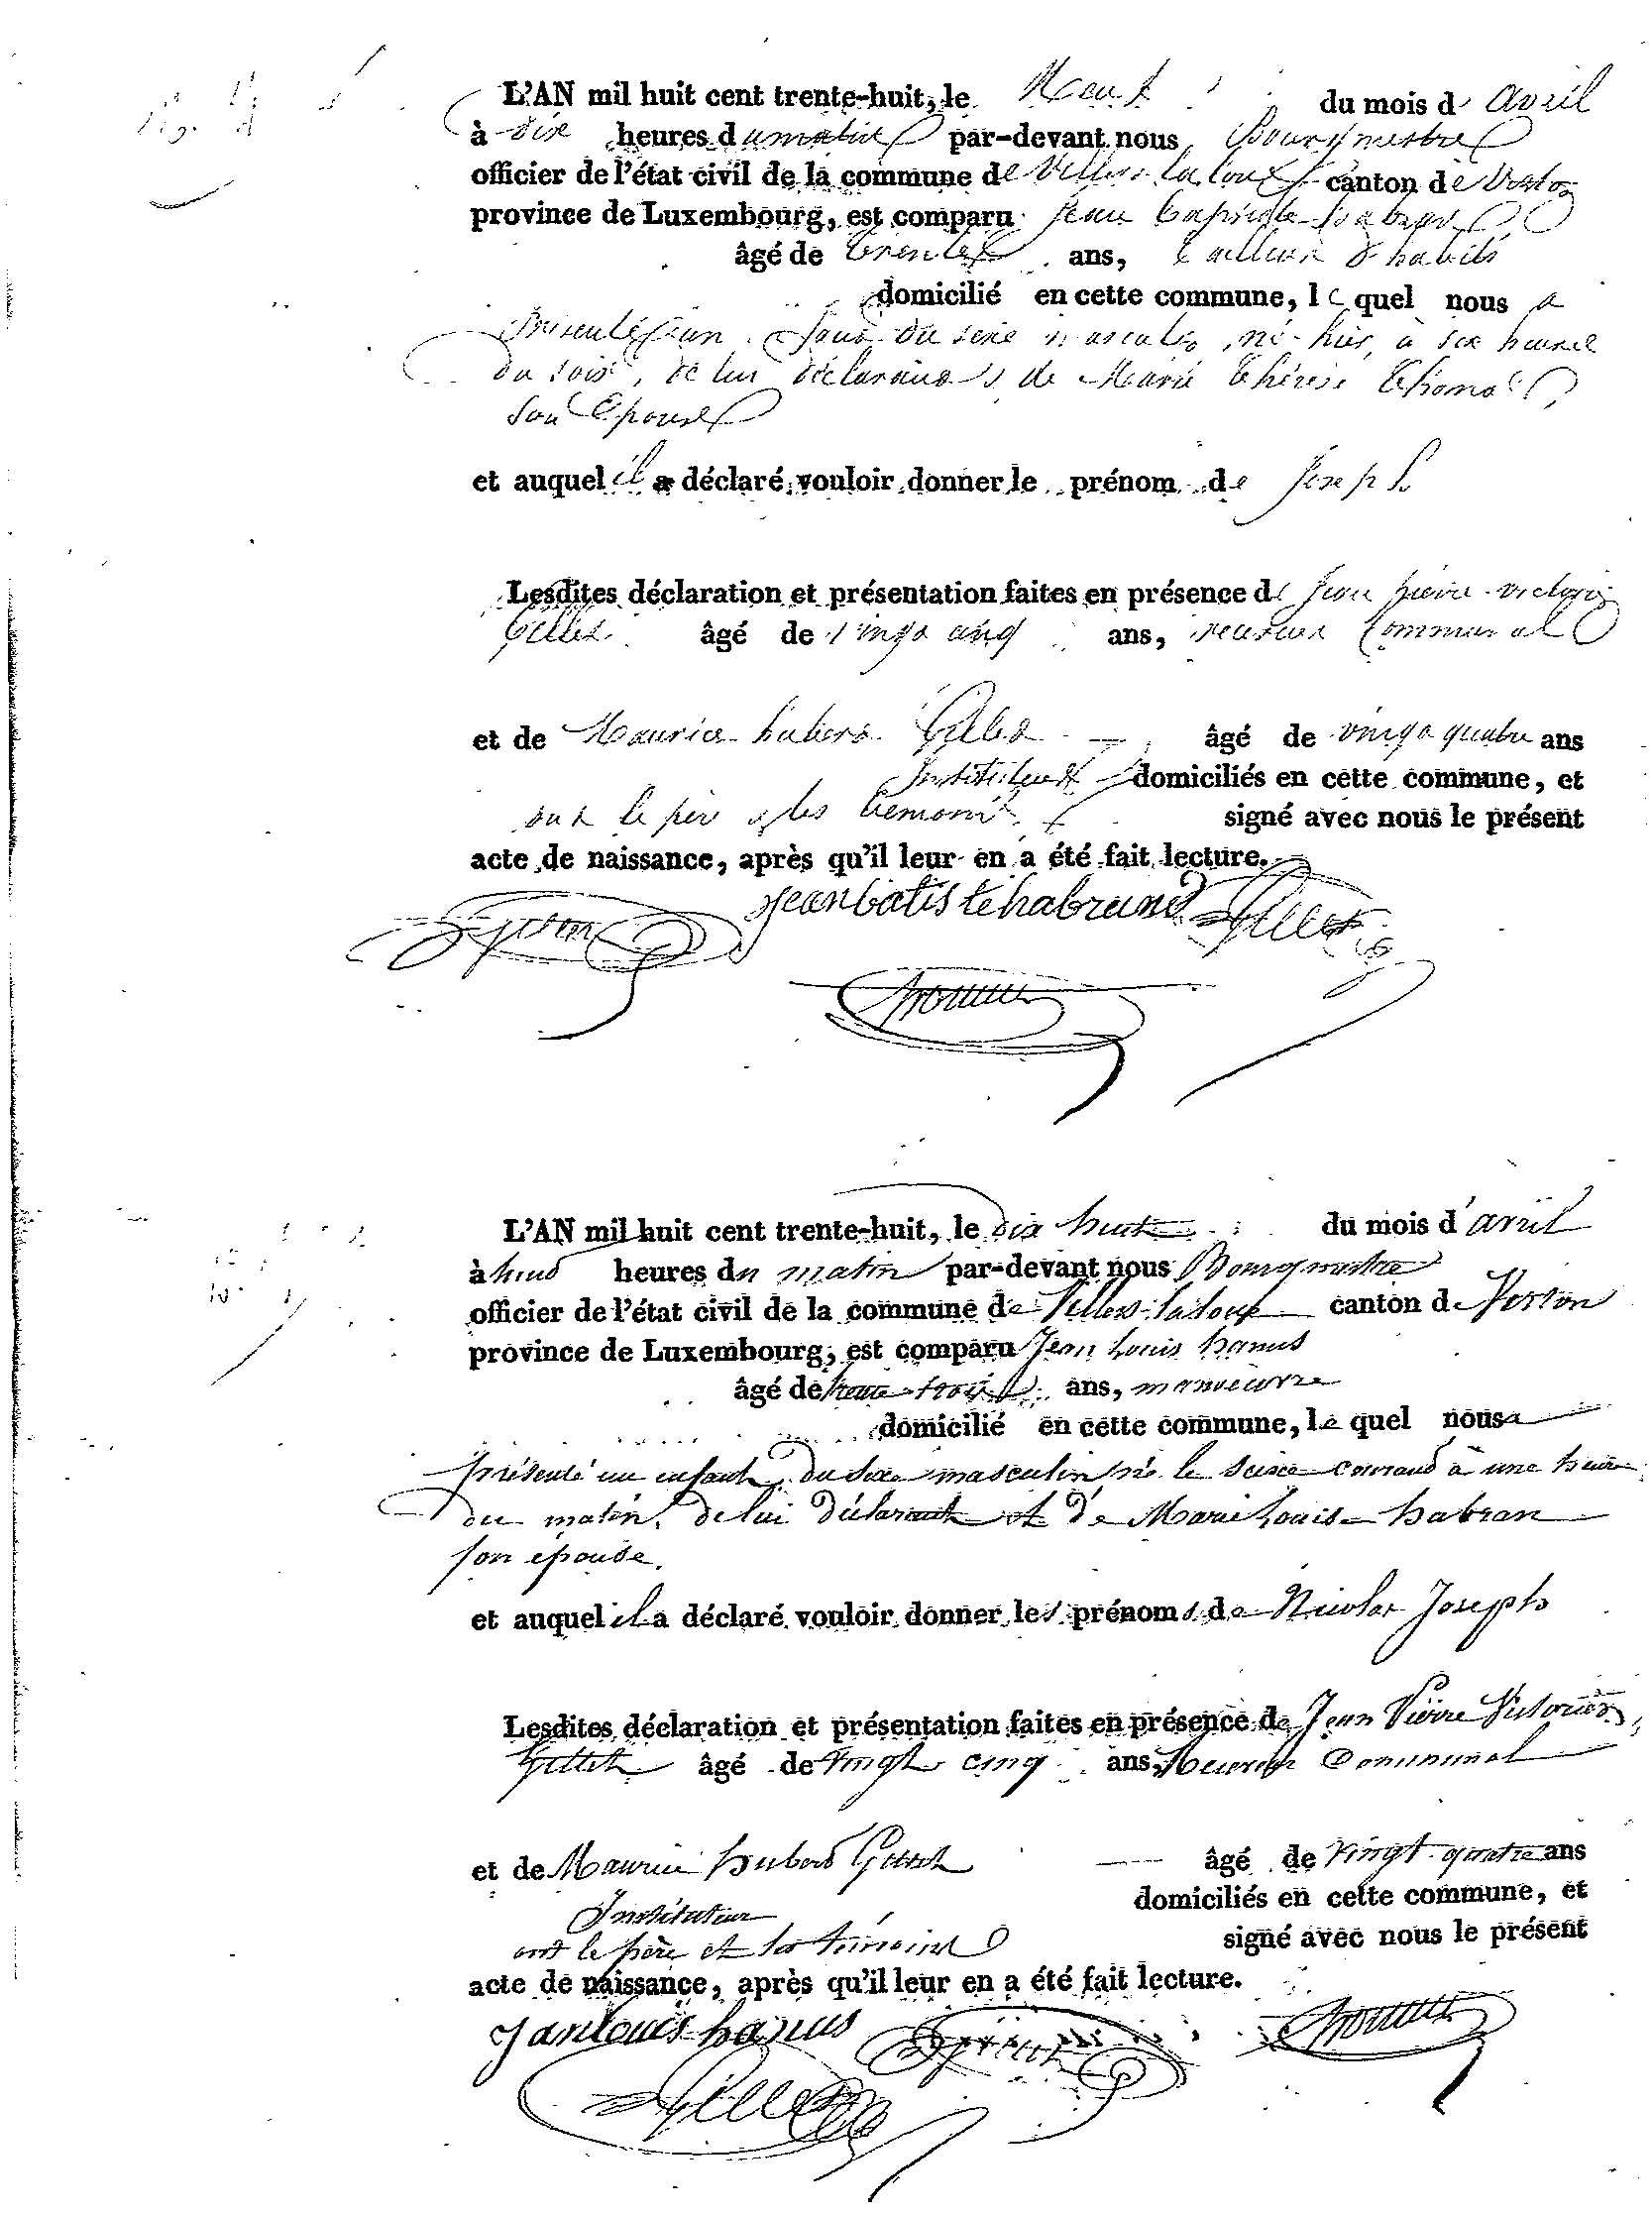 L'AN mil huit cent trente-huit, le Neuf du mois d'avril
à dix heures du matin par-devant nous Bourgmestre
officier de l'état civil de la commune de Villers-la-loue canton de Virton
province de Luxembourg, est comparu Jean baptiste habran
âgé de trente ans, tailleur d'habits
domicilié en cette commune, le quel nous a
présenté un du sexe masculin, né hier à six heures
du soir, de lui déclarant & de Marie thérèse thomas
son épouse
et auquel il a déclaré vouloir donner le prénom de joseph
Lesdites déclaration et présentation faites en présence de jean pierre victorin
Gillet âgé de vingt cinq ans, receveur communal
et de Maurice hubert Gillet âgé de vingt quatre ans
Instituteur domiciliés en cette commune, et
ont le père & les témoins signé avec nous le présent
acte de naissance, après qu'il leur en a été fait lecture.
jeanbatiste habrand Gillet
L'AN mil huit cent trente-huit, le dix huit du mois d'avril
à huit heures du matin par-devant nous Bourgmestre
officier de l'état civil de la commune de Villers-laloue canton de Virton
province de Luxembourg, est comparu Jean Louis hanus
âgé de trente-trois ans, manoeuvre
domicilié en cette commune, le quel nous a
présenté un enfant du sexe masculin né le seize courant à une heure
du matin, de lui déclarant et de Marie Louise habran
son épouse.
et auquel il a déclaré vouloir donner les prénoms de Nicolas Joseph
Lesdites déclaration et présentation faites en présence de Jean Pierre Victorin
Gillet âgé de vingt cinq ans, Receveur Communal
et de Maurice hubert Gillet âgé de vingt-quatre ans
Instituteur domiciliés en cette commune, et
ont le père et les témoins signé avec nous le présent
acte de naissance, après qu'il leur en a été fait lecture.
janlouis hanus
Gillet